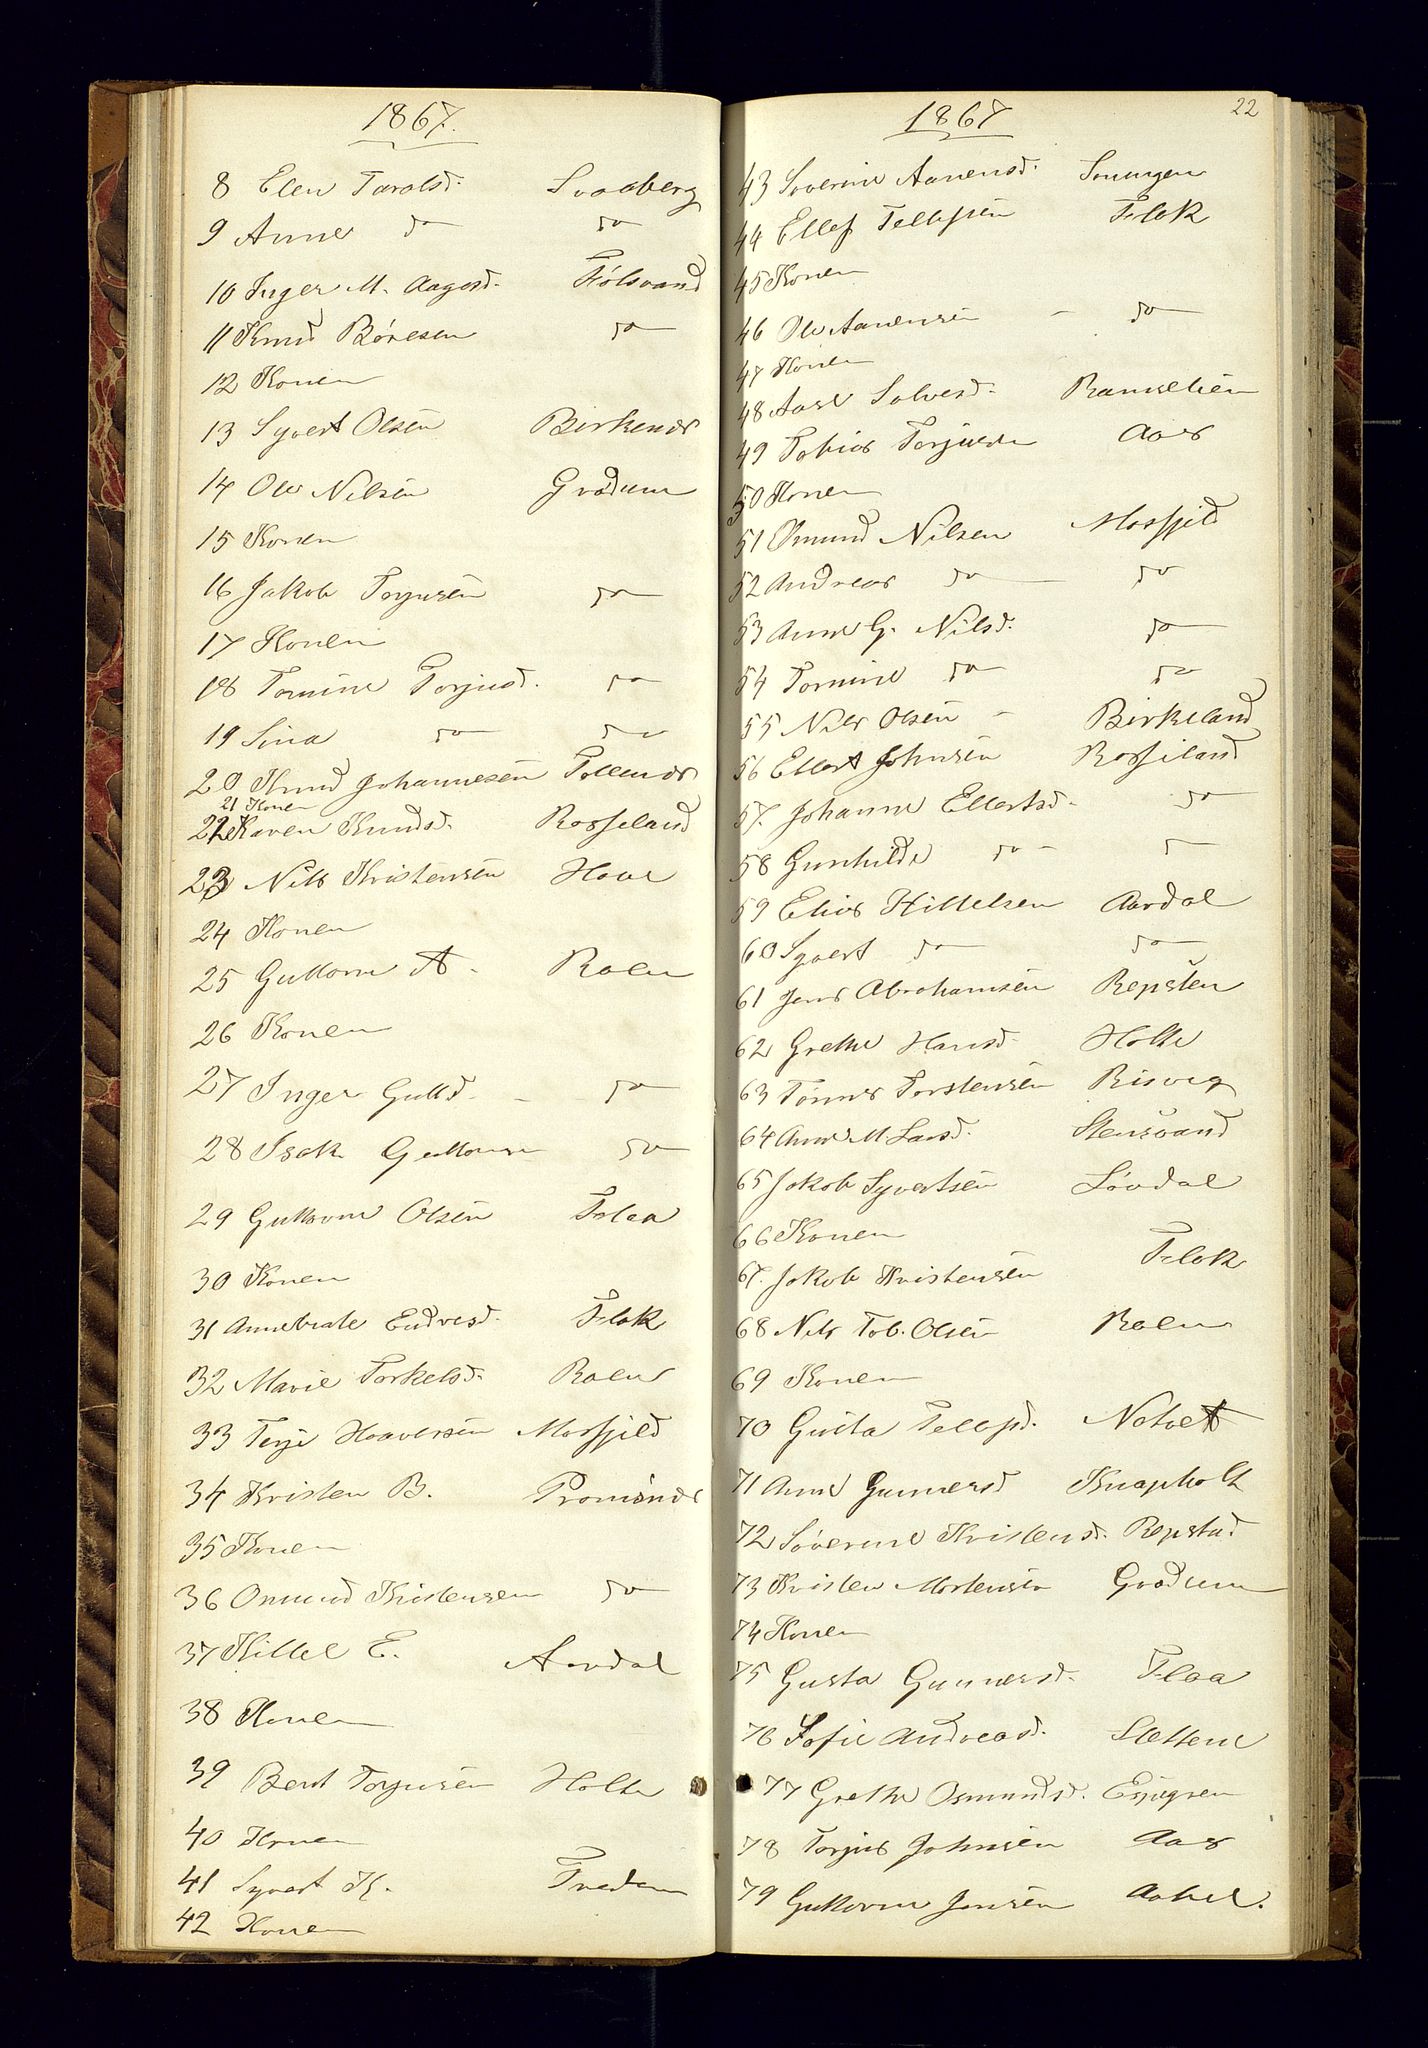 1867.
8 Elen Taralsd. Svaaberg
9 Anne do do
10 Inger M. Aagesd. Følsvand
11 Knud Børesen do
12 Konen
13 Syvert Olsen Birkenes
14 Ole Nilsen Grødum
15 Konen
16 Jakob Torjusen do
17 Konen
18 Tomine Torjusd. do
19 Sina do do
20 Knud Johannesen Tollenes
21 Konen
22 Karen Knudsd. Rosseland
23 Nils Kristensen Haae
24 Konen
25 Guttorm A. Roen
26 Konen
27 Inger Guttd. - do
28 Isak Guttormsen do
29 Guttorm Olsen Flaa
30 Konen
31 Annebeate Endresd. Flak
32 Marie Torkelsd. Roen
33 Terje Haaversen Mosfjeld
34 Kristen B. Tromsnes
35 Konen
36 Omund Kristensen do
37 Kittel E. Aardal
38 Konen
39 Bent Torjusen Holte
40 Konen
41 Syvert K. Tveden
42 Konen
1867
22
43 Soverine Aanensd.
44 Ellef Tellefsen Flak
45 Konen
46 Ole Aanensen - do
47 Konen
48 Aase Salvesd. Ramselien
49 Tobias Torjusen Aas
50 Konen
51 Omund Nilsen Mosfjeld
52 Andreas do do
53 Anne G. Nilsd. do
54 Tomine do do
55 Nils Olsen - Birkeland
56 Ellert Johnsen Rosseland
57. Johanne Ellertsd. do
58 Gunhilde do -
59 Elias Kittelsen Aardal
60 Syvert do do
61 Jens Abrahamsen Repsten
62 Grethe Hansd. Holte
63 Tønnes Torstensen Risveg
64 Anne M Larsd. Stensvand
65 Jakob Syvertsen Løvdal
66 Konen
67. Jakob Kristensen Flak
68 Nils Tob. Olsen Roen
69 Konen
70 Gusta Tellefsd. Natvet
71 Anne Gunnersd Knapholt
72 Søverine Kristensd. Repstad
73 Kristen Mortensen Grødum
74 Konen
75 Gusta Gunnersd. Flaa
76 Sofie Andreasd. Slettene
77 Grethe Osmundsd.
78 Torjus Johnsen Aas
79 Guttorm Jensen